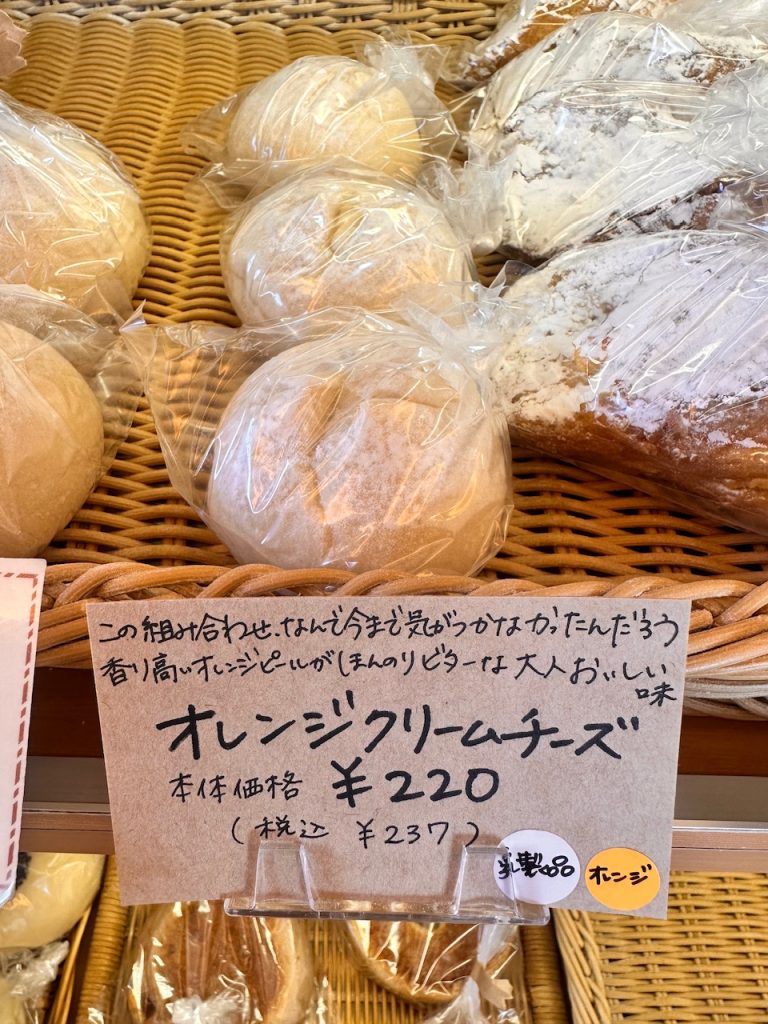 この組み合わせ、なんで今まで気がつかなかったんだろう
香り高いオレンジピールがほんのりビターな大人おいしい
味
オレンジクリームチーズ
本体価格 ¥220
(税込 ¥237)
乳製品
オレンジ